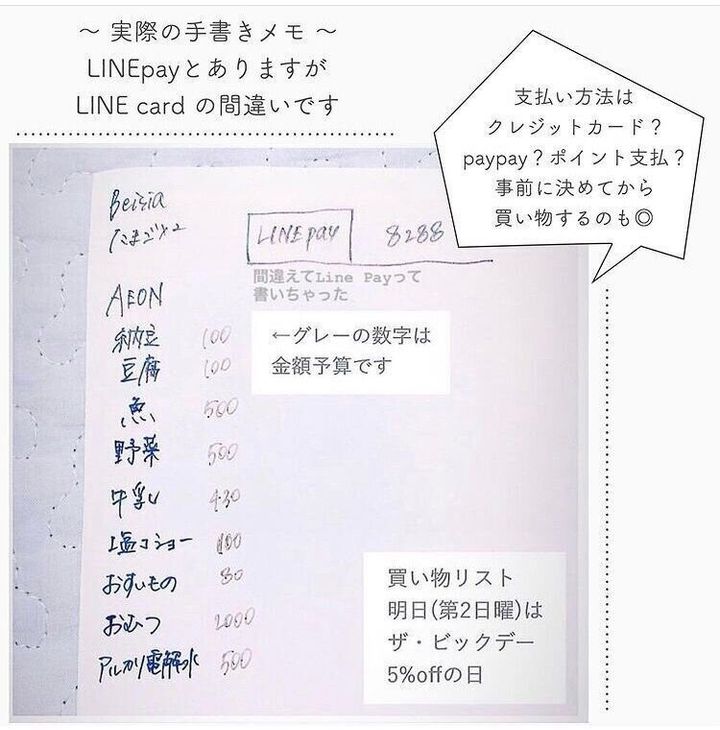 〜 実際の手書きメモ 〜
LINEpayとありますが
LINE card の間違いです
支払い方法は
クレジットカード？
paypay？ポイント支払？
事前に決めてから
買い物するのも◎
Beisia
たまご×2
LINE pay 8288
間違えてLine Payって
書いちゃった
AEON
納豆 100
豆腐 100
←グレーの数字は
金額予算です
魚 500
野菜 500
牛乳 430
塩コショー 100
おすいもの 80
おむつ 2000
アルカリ電解水 500
買い物リスト
明日(第2日曜)は
ザ・ビックデー
5%offの日